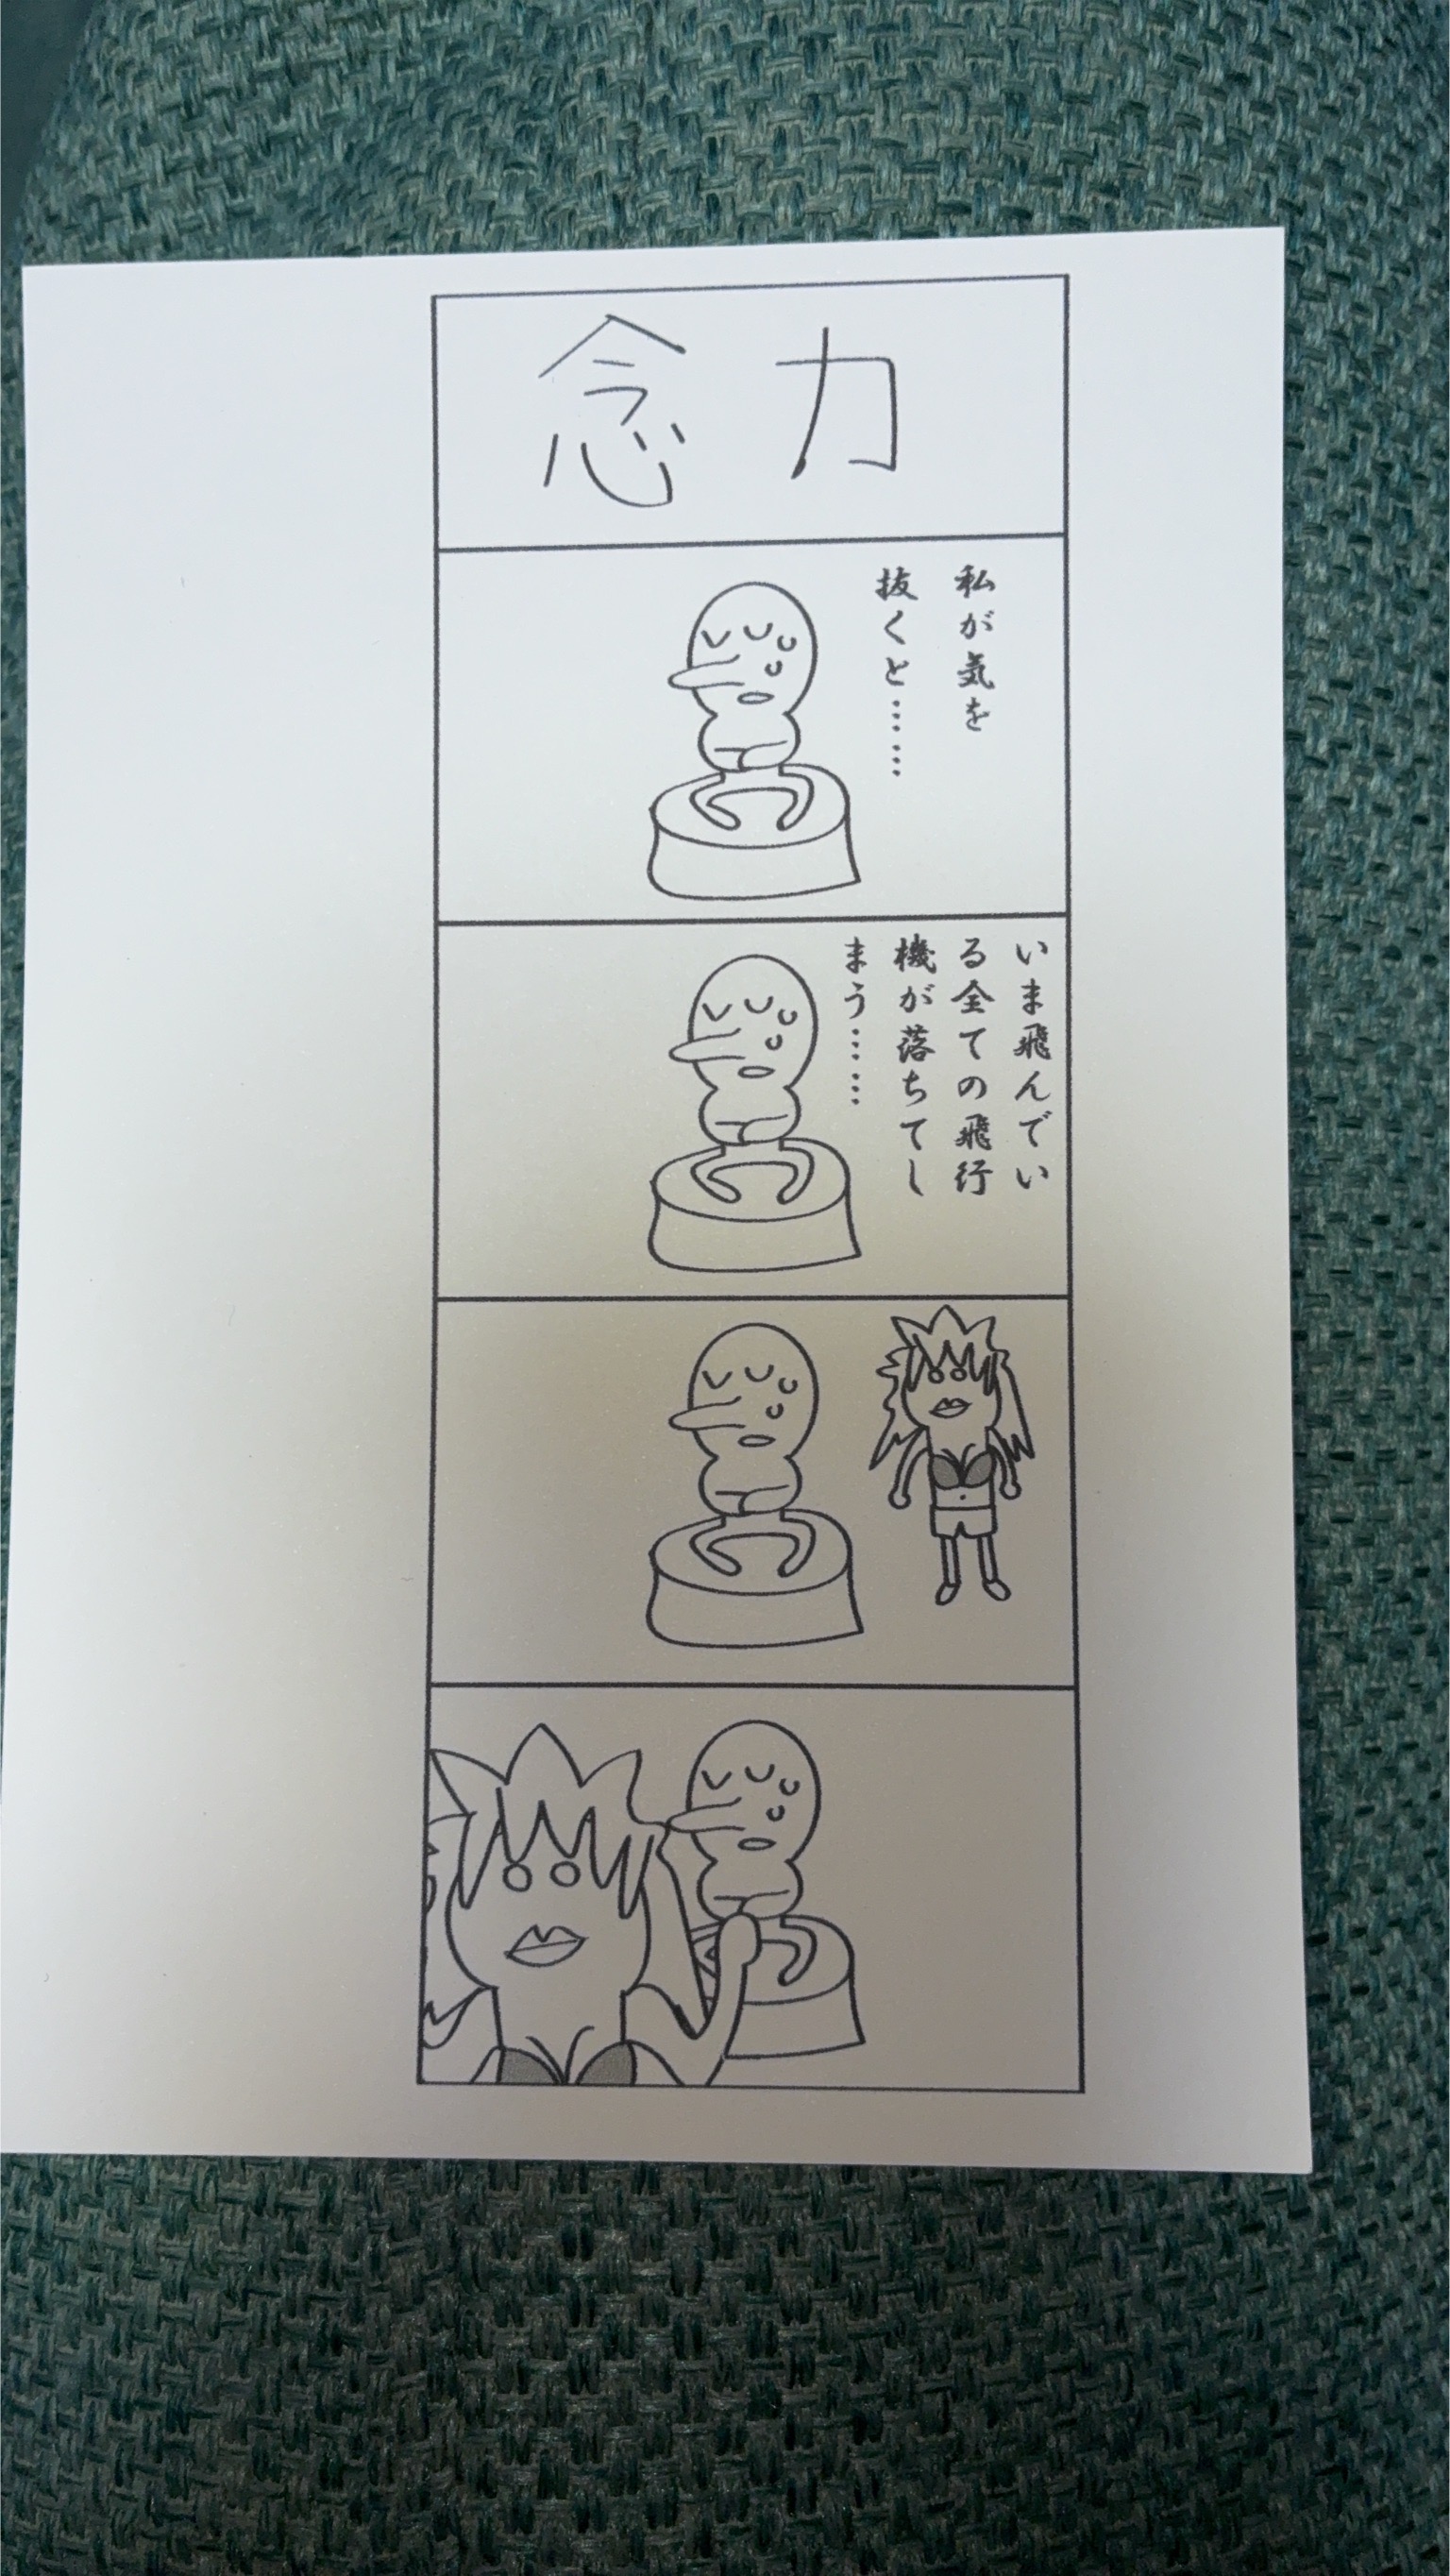 念力
私が気を
抜くと……
いま飛んでい
る全ての飛行
機が落ちてし
まう……